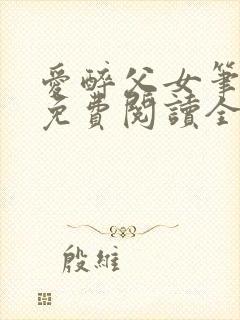 愛醉父女筆
免費閱讀全
殷維